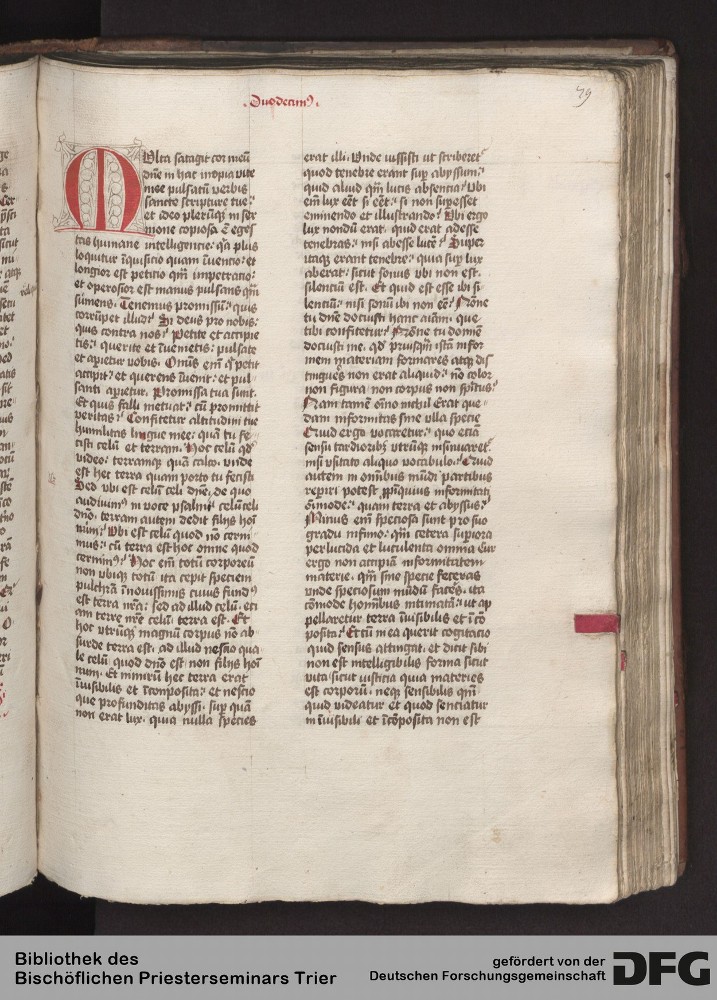 .Duodecimꝰ.
79
Multa satagit cor meū
dn̄e in hac inopia vite
mee pulsatū verbis
sancte scripture tue:
et ideo plerūqꝫ in ser
mone copiosa ē eges
tas humane intelligencie: qꝛ plus
loquitur īquisicio quam īuentio: et
longior est petitio qm̄ impetratio:
et operosior est manus pulsans qm̄
sumens. Tenemus promissū: quis
corrūpet illud? Si deus pro nobis:
quis contra nos? Petite et accipie
tis: querite et īuenietis: pulsate
et apietur vobis. Omīs em̄ qͥ petit
accipit: et querens īuenit: et pul-
santi apietur. Promissa tua sunt.
Et quis falli metuat: cū promittit
veritas? Confitetur altitudini tue
humilitas lingue mee: qm̄ tu fe-
cisti celū et terram. Hoc celū qd̓
video: terramqꝫ quā calco. vnde
est hec terra quam porto tu fecisti
Sed vbi est celū celi dn̄e: de quo
audiuimꝰ in voce psalmi: celū celi
dn̄o. terram autem dedit filijs hoı̄
num? Vbi est celū quod nō cerni
mus: cū terra est hoc omne quod
cernimꝰ? Hoc em̄ totū corporeū
non vbiqꝫ totū ita cepit speciem
pulchrā ī nouissimis cuius fundꝰ
est terra nr̄a: sed ad illud celū. eti
am terre nr̄e celū terra est. Et
hoc vtrūqꝫ magnū corpus nō ab
surde terra est. ad illud nescio qua
le celū quod dn̄o est non filijs hoı̄
num. Et nimirū hec terra erat
īuisibilis et īcomposita: et nescio
que profunditas abyssi. sup̱ quā
non erat lux. quia nulla species
erat illi. Vnde iussisti ut scriberetᷣ
quod tenebre erant sup̱ abyssum:
quid aliud qm̄ lucis absentia? Vbi
em̄ lux eēt si eēt: si non sup̱esset
eminendo et illustrando? Vbi ergo
lux nondū erat. quid erat adesse
tenebras: nisi abesse lucē? Super
itaqꝫ erant tenebre: quia sup̱ lux
aberat: sicut sonus vbi non est.
silentiū est. Et quid est esse ibi si
lentiū: nisi sonū ibi non eē? Nōne
tu dn̄e docuisti hanc aīam. que
tibi confitetur? Nōne tu domine
docuisti me. qd̓ priusqm̄ istā infor
mem materiam formares atqꝫ dis
tingueres non erat aliquid: nō color
non figura non corpus non sp̄itus?
Nam tamē om̄ino nichil erat que
dam informitas sine vlla specie
Quid ergo vocaretur: quo etiā
sensu tardioribꝰ vtrūqꝫ insinuaretᷣ.
nisi vsitato aliquo vocabulo: Quid
autem in omnibus mūdi partibus
reperiri potest ꝓpīquius informitati
om̄imode: quam terra et abyssus?
Minus em̄ speciosa sunt pro suo
gradu infimo: qm̄ cetera sup̱iora
perlucida et luculenta omnia Cur
ergo non accipiā informitatem
materie. qm̄ sine specie feceras
vnde speciosum mūdū faceres. ita
cōmode hominibus intimatā: ut ap
pellaretur terra īuisibilis et īcō
posita? Et cū in ea querit cogitacio
quid sensus attingat. et dicit sibi
non est intelligibilis forma sicut
vita: sicut iusticia quia materies
est corporū. neqꝫ sensibilis qm̄
quid videatur et quod senciatur
in īuisibili et īcōposita non est
Bibliothek des
Bischöflichen Priesterseminars Trier
gefördert von der
Deutschen Forschungsgemeinschaft
DFG